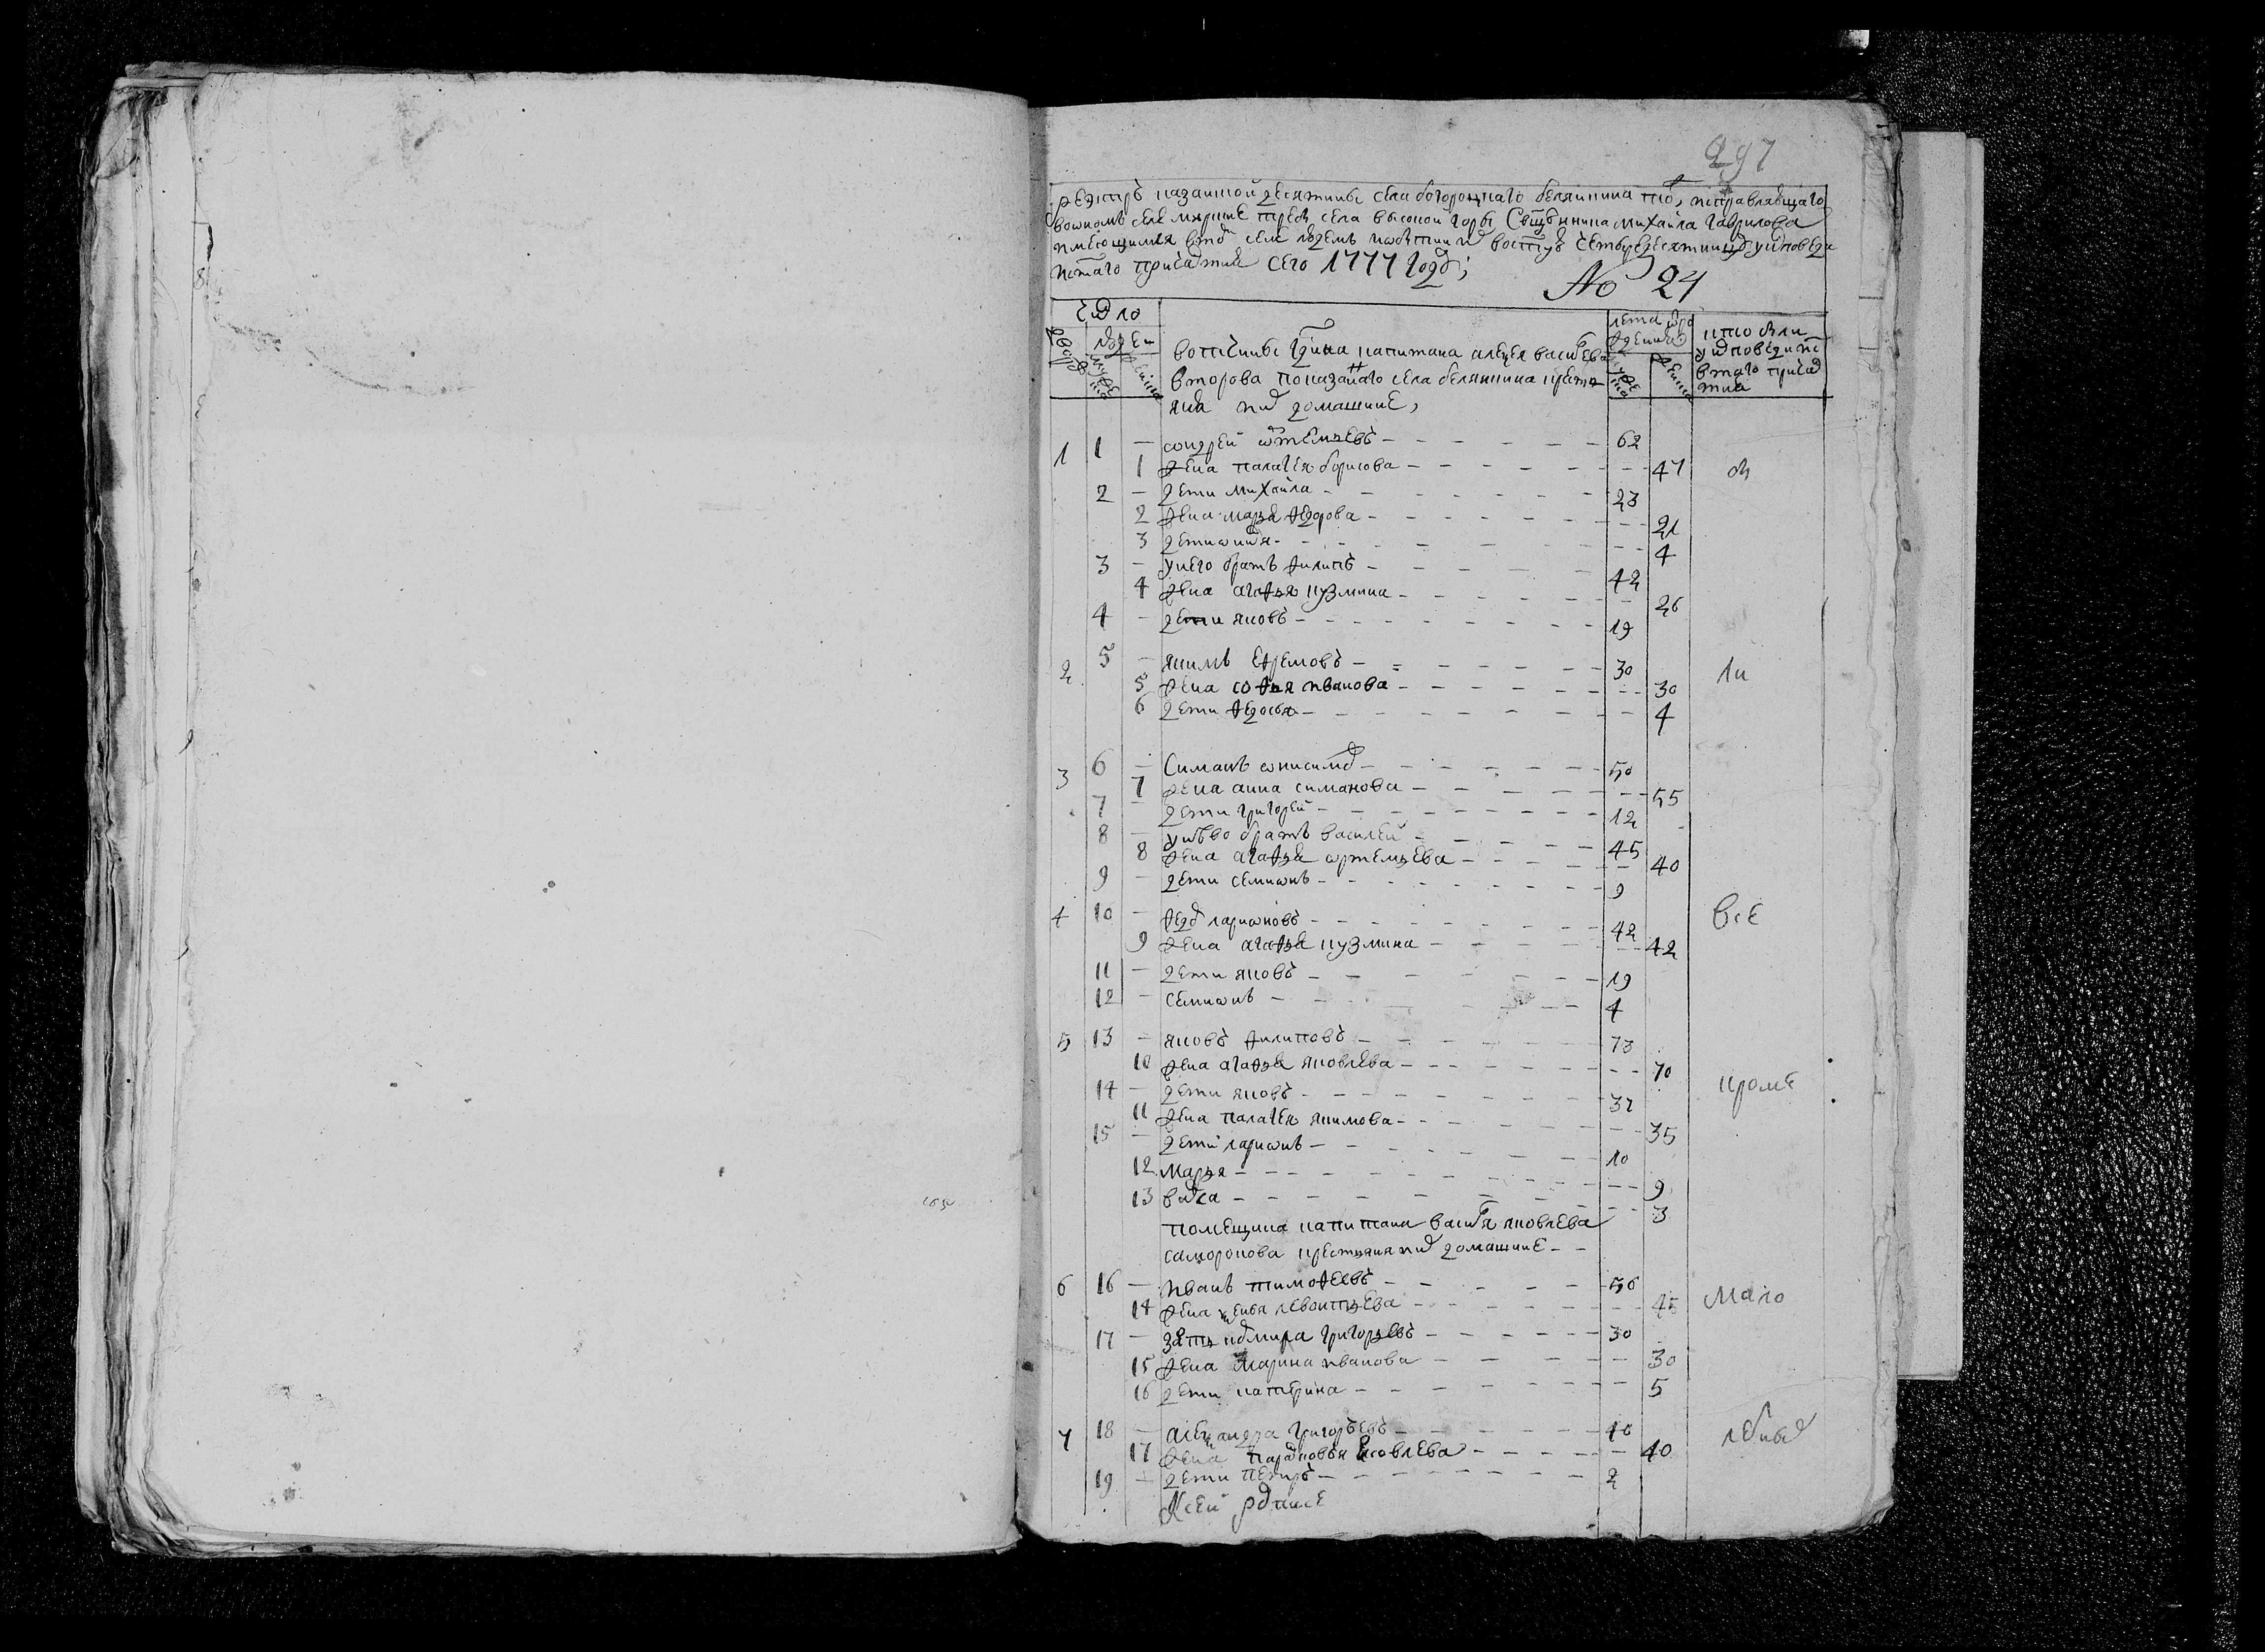 297
реэстръ казанской десятины села богороцкаго белянкина тоѧ исправлѧющаго
воономъ селе мирские требы села высокой горы Священника михайла гаврилова
имеющимся в томъ селе людемъ
святаго причастия сего 1777 году;
No 24
Число
дворовъ
людей
мужеска
женска
вотчины гдина капитана алеѯея василева
второва показаннаго села белянкина крестя
яна и домашние,
лета от ро
ждения
мужеска
женска
кто были
у исповеди и с
втаго причас
тия
1 1 — андрей артемьевъ — 62
1 жена палагея борисова — 47 бы
2 — дети михайла — 23
2 жена марья федорова — 21
3 дети — 4
3 — унего братъ филипъ — 42
4 жена агафья кузмина — 26
4 — дети яковъ — 19
2 5 — якимъ ефремовъ — 30 ли
5 жена софья иванова — 30
6 дети федосья — 4
3 6 — Симанъ ѡнисимо — 50
7 жена анна симанова — 55
7 — дети григорей — 12
8 — унево братъ василей — 45
8 жена агафья артемьева — 40
9 — дети семиѡнъ — 9
4 10 — федо лариѡновъ — 42 все
9 жена агафья кузмина — 42
11 — дети яковъ — 19
12 — семиѡнъ — 4
5 13 — яковъ филиповъ — 73
10 жена агафья яковлева — 70
14 — дети яковъ — 37 кроме
11 жена палагея якимова — 35
15 — дети лариѡнъ — 10
12 марья — 9
13 — 3
помещика капитана василья яковлева
саморокова крестьяня и домашние —
6 16 — иванъ тимофеевъ — 50
14 жена ксенья левонтьева — 45 мало
17 — зять григорьевъ — 30
15 жена марина иванова — 30
16 дети катерина — 5
7 18 — алеѯандра григорьевъ — 40
17 жена парасковья яковлева — 40
19 — дети петръ — 2
К сей росписе